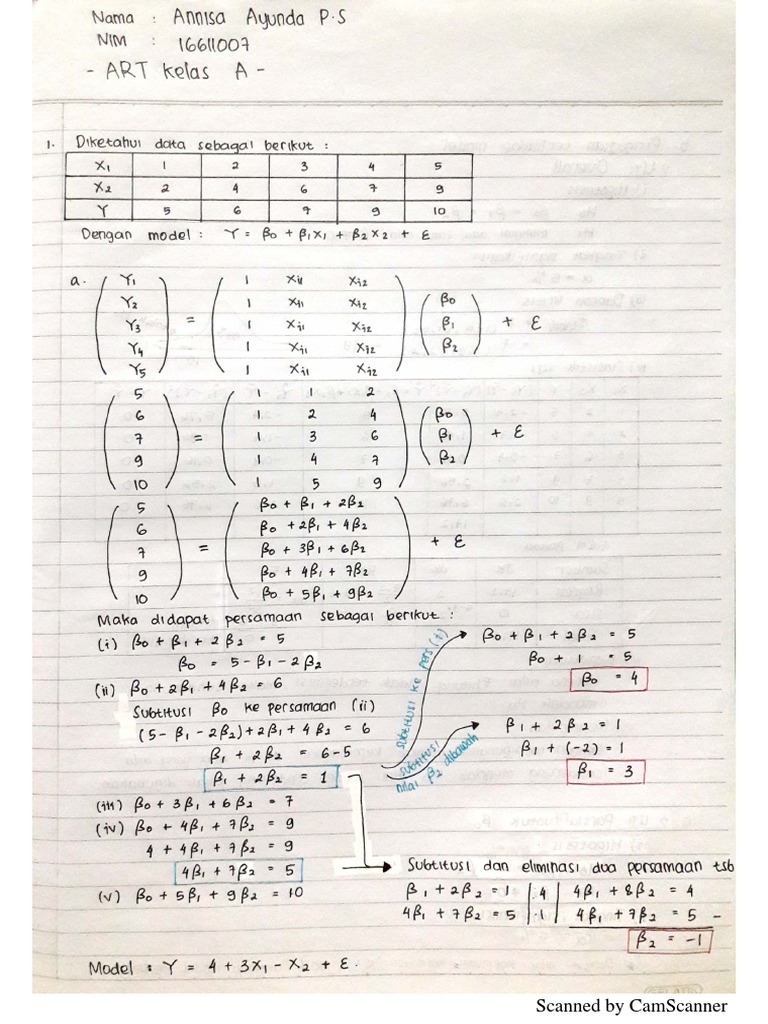 Nama : Annisa Ayunda P.S
NIM : 16611007
- ART Kelas A -
1. Diketahui data sebagai berikut :
X1 1 2 3 4 5
X2 2 4 6 7 9
Y 5 6 7 9 10
Dengan model : Y = β0 + β1X1 + β2X2 + ε
a. (Y1 Y2 Y3 Y4 Y5) = (1 Xi1 Xi2
1 Xi1 Xi2
1 Xi1 Xi2
1 Xi1 Xi2
1 Xi1 Xi2) (β0 β1 β2) + ε
(5 6 7 9 10) = (1 1 2
1 2 4
1 3 6
1 4 7
1 5 9) (β0 β1 β2) + ε
5 β0 + β1 + 2β2
6 β0 + 2β1 + 4β2
7 = β0 + 3β1 + 6β2 + ε
9 β0 + 4β1 + 7β2
10 β0 + 5β1 + 9β2
Maka didapat persamaan sebagai berikut :
(i) β0 + β1 + 2β2 = 5
β0 = 5 - β1 - 2β2
(ii) β0 + 2β1 + 4β2 = 6
Subtitusi β0 ke persamaan (ii)
(5 - β1 - 2β2) + 2β1 + 4β2 = 6
β1 + 2β2 = 6-5
β1 + 2β2 = 1
(iii) β0 + 3β1 + 6β2 = 7
(iv) β0 + 4β1 + 7β2 = 9
4 + 4β1 + 7β2 = 9
4β1 + 7β2 = 5
(v) β0 + 5β1 + 9β2 = 10
subtitusi ke pers (i)
β0 + β1 + 2β2 = 5
β0 + 1 = 5
β0 = 4
subtitusi
nilai β2 dibawah
β1 + 2β2 = 1
β1 + (-2) = 1
β1 = 3
Subtitusi dan eliminasi dua persamaan tsb
β1 + 2β2 = 1 | .4 | 4β1 + 8β2 = 4
4β1 + 7β2 = 5 | .1 | 4β1 + 7β2 = 5 -
β2 = -1
Model : Y = 4 + 3X1 - X2 + ε.
Scanned by CamScanner